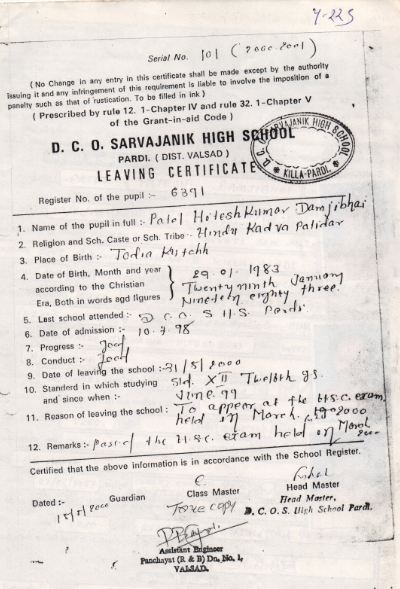 Y-225
Serial No. 101 (2000-2001)
( No Change in any entry in this certificate shall be made except by the authority
issuing it and any infringement of this requirement is liable to involve the imposition of a
penelty such as that of rustication. To be filled in ink )
( Prescribed by rule 12. 1-Chapter IV and rule 32. 1-Chapter V
of the Grant-in-aid Code )
D. C. O. SARVAJANIK HIGH SCHOOL
PARDI. ( DIST. VALSAD )
LEAVING CERTIFICATE
D. C. O. SARVAJANIK HIGH SCHOOL
* KILLA-PARDI. *
Register No. of the pupil :- 6391
1. Name of the pupil in full :- Patel Hiteshkumar Damjibhai
2. Religion and Sch. Caste or Sch. Tribe :- Hindu Kadva Patidar
3. Place of Birth :- Todia Kutchh
4. Date of Birth, Month and year
according to the Christian
Era, Both in words agd figures
29.01.1983
Twenty ninth January
Nineteen eighty three.
5. Last school attended :- D.C.O. S H.S. Pardi.
6. Date of admission :- 10.7.98
7. Progress :- Good
8. Conduct :- Good
9. Date of leaving the school :- 31/5/2000
10. Standerd in which studying Std. XII Twelth
and since when :- June 99
11. Reason of leaving the school : To appear at the H.S.C. exam
held in March. 2000
12. Remarks :- Passed the H.S.C. exam held in March
2000
Certified that the above information is in accordance with the School Register.
Dated :- Guardian Class Master Head Master
15/5/2000 True copy
Head Master,
D. C. O. S. High School Pardi.
Assistant Engineer
Panchayat (R & B) Dn. No. 1,
VALSAD.